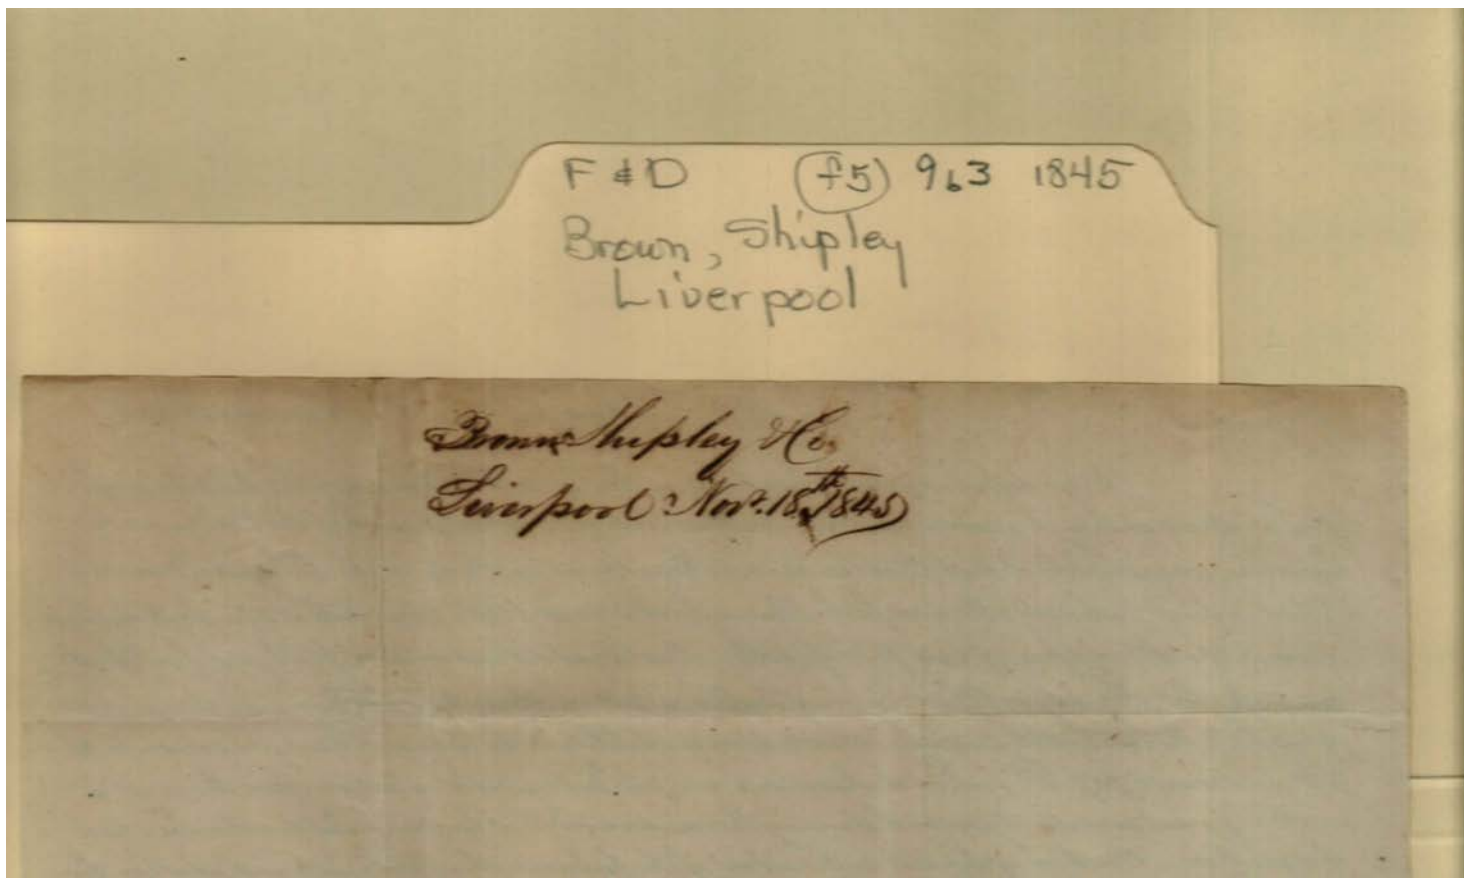 F & D (f5) 963 1845
Brown, Shipley
Liverpool
Brown Shipley & Co.
Liverpool Nov. 18th 1845